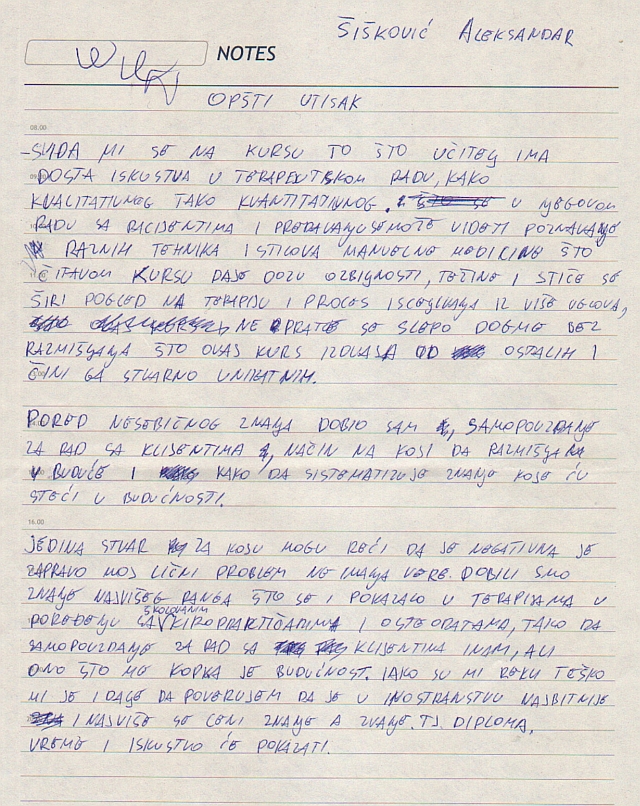 ŠIŠKOVIĆ ALEKSANDAR
NOTES
OPŠTI UTISAK
08.00
-SVIĐA MI SE NA KURSU TO ŠTO UČITELJ IMA
DOSTA ISKUSTVA U TERAPEUTSKOM RADU, KAKO
KVALITATIVNOG TAKO KVANTITATIVNOG. U NJEGOVOM
RADU SA PACIJENTIMA I PREDAVANJU SE MOŽE VIDETI POZNAVANJE
RAZNIH TEHNIKA I STILOVA MANUELNE MEDICINE ŠTO
ČITAVOM KURSU DAJE DOZU OZBILJNOSTI, TEŽINE I STIČE SE
ŠIRI POGLED NA TERAPIJU I PROCES ISCELJENJA IZ VIŠE UGLOVA,
NE PRATE SE SLEPO DOGME BEZ
RAZMIŠLJANJA ŠTO OVAJ KURS IZDVAJA OD OSTALIH I
ČINI GA STVARNO UNIKATNIM.
PORED NESEBIČNOG ZNANJA DOBIO SAM, SAMOPOUZDANJE
ZA RAD SA KLIJENTIMA, NAČIN NA KOJI DA RAZMIŠLJAM
U BUDUĆE I KAKO DA SISTEMATIZUJE ZNANJE KOJE ĆU
STEĆI U BUDUĆNOSTI.
16.00
JEDINA STVAR ZA KOJU MOGU REĆI DA JE NEGATIVNA JE
ZAPRAVO MOJ LIČNI PROBLEM NE IMANJA VERE. DOBILI SMO
ZNANJE NAJVIŠEG RANGA ŠTO SE I POKAZALO U TERAPIJAMA U
POREĐENJU SA ŠKOLOVANIM KIROPRAKTIČARIMA I OSTEOPATAMA, TAKO DA
SAMOPOUZDANJE ZA RAD SA KLIJENTIMA IMAM, ALI
ONO ŠTO ME KOPKA JE BUDUĆNOST. IAKO SU MI REKLI TEŠKO
MI JE I DALJE DA POVERUJEM DA JE U INOSTRANSTVU NAJBITNIJE
I NAJVIŠE SE CENI ZNANJE A ZVANJE. TJ. DIPLOMA,
VREME I ISKUSTVO ĆE POKAZATI.